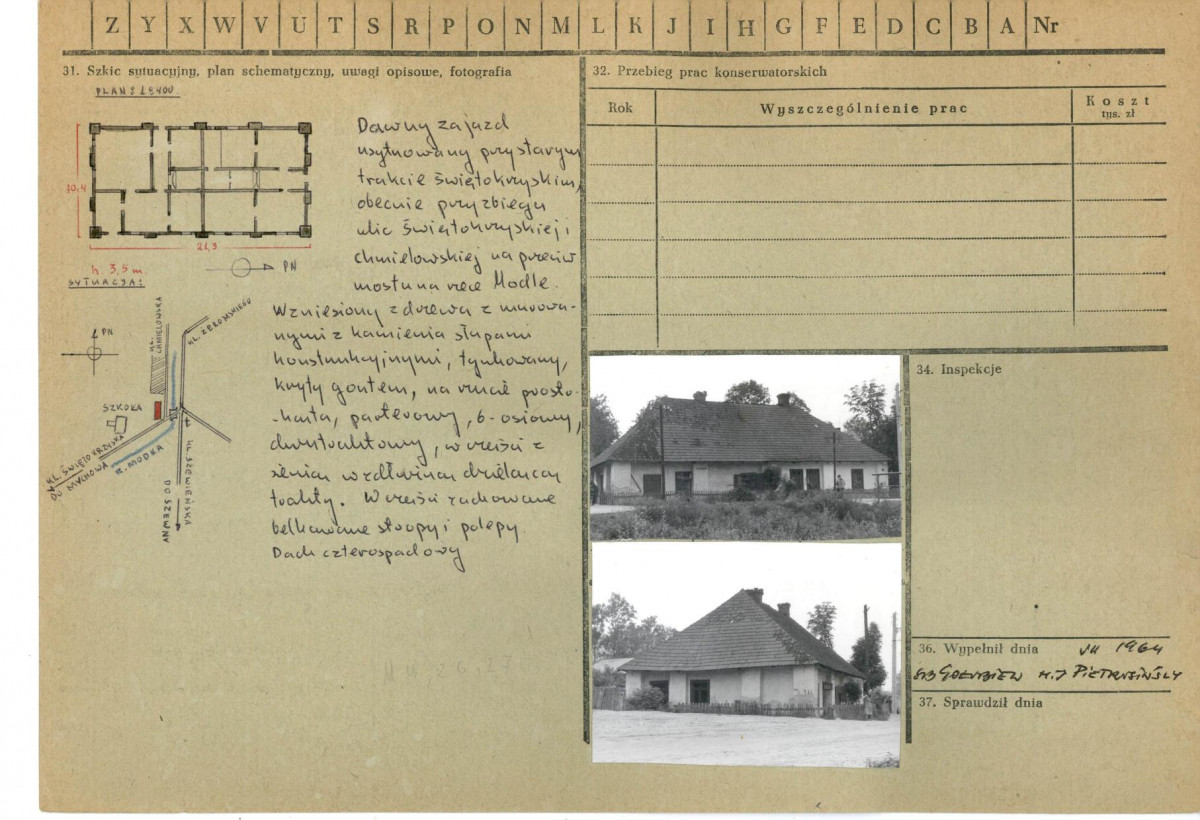 Z Y X W V U T S R P O N M L K J I H G F E D C B A Nr
31. Szkic sytuacyjny, plan schematyczny, uwagi opisowe, fotografia
PLAN 1:400
10,4
21,3
h. 3,5 m.
PN
SYTUACJA:
PN
UL. CHMIELOWSKA
UL. ŻEROMSKIEGO
SZKOŁA
UL. ŚWIĘTOKRZYSKA
DO MYCHOWA
R. MODŁA
DO SZEWNY
UL. SZEWIEŃSKA
Dawny zajazd
usytuowany przy starym
trakcie świętokrzyskim,
obecnie przy zbiegu
ulic świętokrzyskiej i
chmielowskiej na przeciw
mostu na rzece Modle.
Wzniesiony z drzewa z murowa-
nymi z kamienia słupami
konstrukcyjnymi, tynkowany,
kryty gontem, na rzucie prosto-
-kąta, parterowy, 6-osiowy,
dwutraktowy, w części z
sienią wzdłużną dzielącą
trakty. W części zachowane
belkowane stropy i polepy.
Dach czterospadowy
32. Przebieg prac konserwatorskich
Rok Wyszczególnienie prac Koszt tys. zł
34. Inspekcje
36. Wypełnił dnia VII 1964
37. Sprawdził dnia